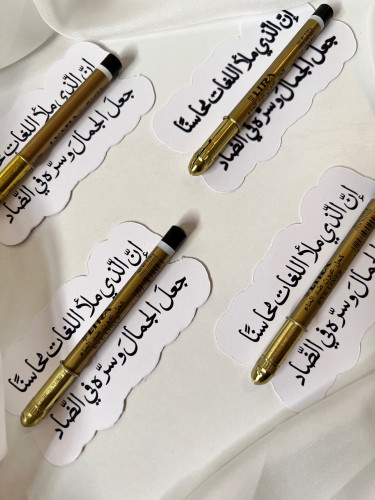 إنّ الّذي ملأ اللغات
جعلَ الجمالَ وسرّه في الضّاد
إنّ الّذي ملأ اللغات محاسنًا
جعلَ الجمالَ وسرّه في الضّاد
إنّ الّذي ملأ اللغات محاسنًا
جعلَ الجمالَ وسرّه في الضّاد
إنّ الّذي ملأ اللغات محاسنًا
جعلَ الجمالَ وسرّه في الضّاد